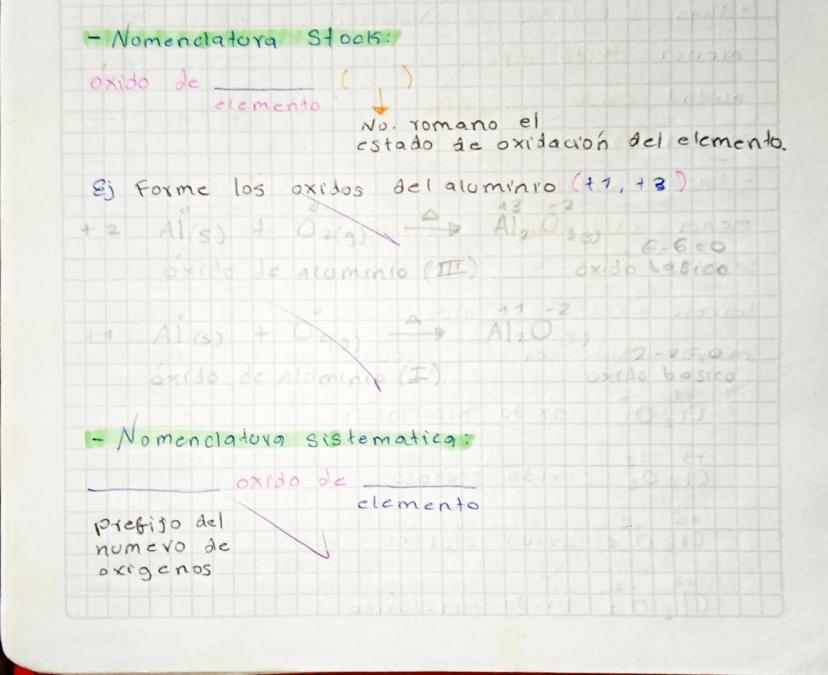 - Nomenclatura Stock:
óxido de ______ ( )
elemento
No. romano el
estado de oxidación del elemento.
Ej Forme los oxidos del aluminio (+1, +3)
Al(s) + O2(g) → Al2O3(s)
6-6=0
óxido de Aluminio (III) óxido basico
+1 Al(s) + O2(g) → Al2O(s)
óxido de Aluminio (I) oxido basico
- Nomenclatura sistematica:
______ oxido de ______
elemento
prefijo del
numero de
oxigenos